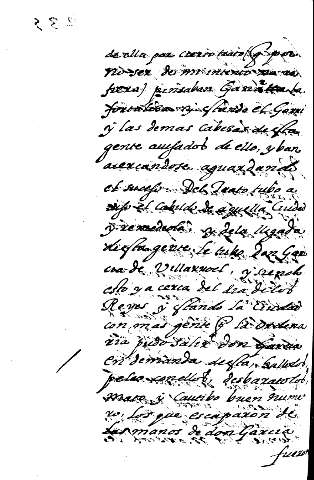 de ella por cierto trato (q por
no ser de mi intento no re
fiera) pensaban Ganar la
fortaleza y estando el Garci
y las demas cabezas de esta
gente avisados de ello, y ban
acercandose aguardando
el suceso. Del trato tubo a
viso el cabildo de aquella Ciudad
y remediolo, y de la llegada
de esta gente le tubo Don Gar
cia de Villarroel, y siendo
esto ya cerca del dia de los
Reyes y estando la Ciudad
con mas gente q la ordina
ria pudo salir don Garcia
en demanda de esta,
peleo con ellos, desbaratolos
mato y Cautibo buen nume
ro, los que escaparon de
las manos de don Garcia
fueron